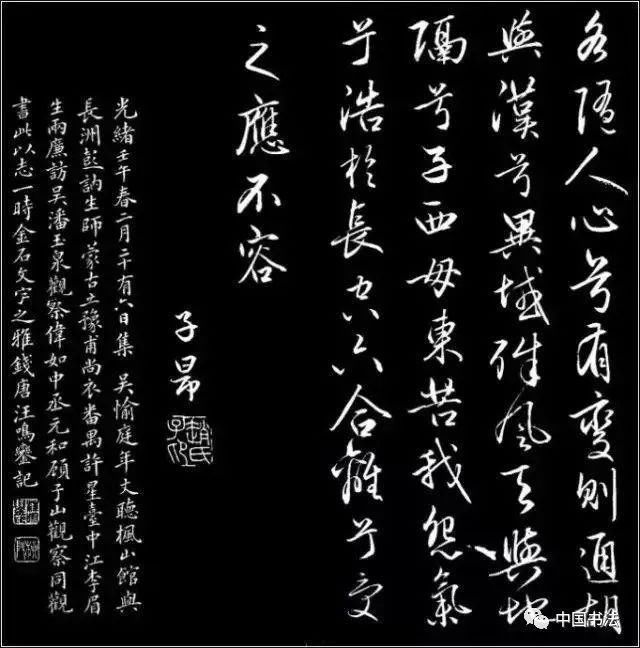 各隨人心兮有變則通胡
與漢兮異域殊風天與地
隔兮子西母東苦我怨氣
兮浩於長空六合離兮受
之應不容
子昂
趙氏子昂
光緒壬午春二月二十有六日集 吳愉庭年丈聽楓山館與
長洲彭訥生師蒙古立豫甫尚衣番禺許星臺中江李眉
生兩廉訪吳潘玉泉觀察偉如中丞元和顧子山觀察同觀
書此以志一時金石文字之雅錢唐汪鳴鑾記
中国书法